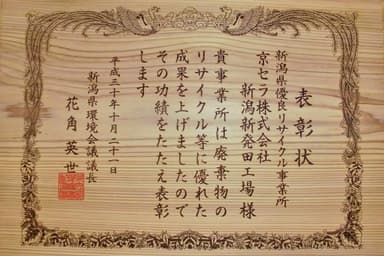 表彰状
新潟県優良リサイクル事業所
京セラ株式会社
新潟新発田工場 様
貴事業所は廃棄物の
リサイクル等に優れた
成果を上げましたので
その功績をたたえ表彰
します
平成三十年十月二十一日
新潟県環境会議議長
花角英世